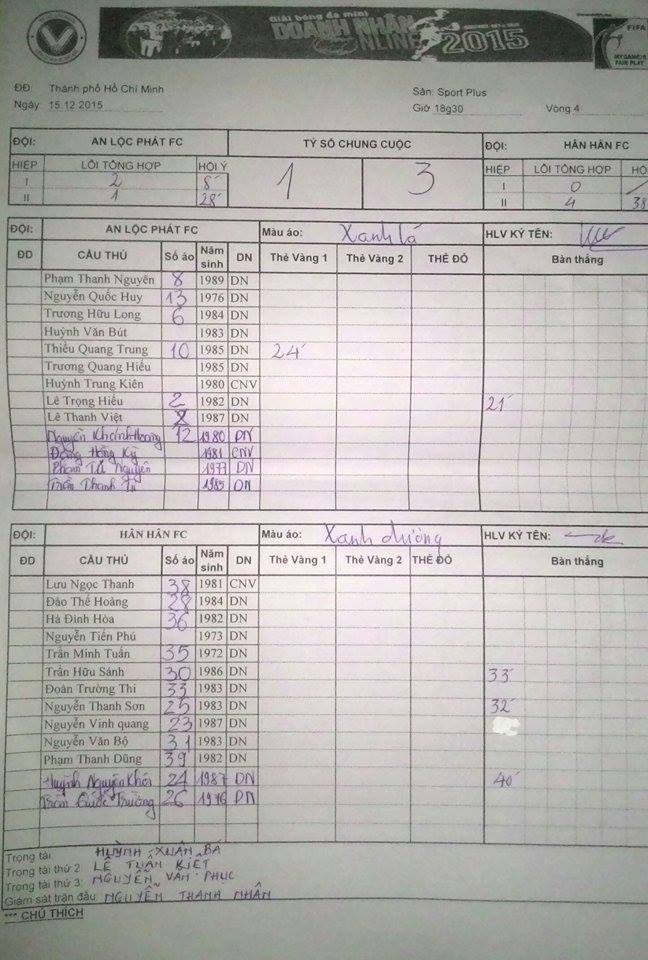 Giải bóng đá mini
DOANH NHÂN
ONLINE 2015
FIFA
MY GAME IS
FAIR PLAY
ĐĐ: Thành phố Hồ Chí Minh Sân: Sport Plus
Ngày: 15.12.2015 Giờ 18g30 Vòng 4
ĐỘI: AN LỘC PHÁT FC TỶ SỐ CHUNG CUỘC ĐỘI: HÂN HÂN FC
HIỆP LỖI TỔNG HỢP HỘI Ý 1 3 HIỆP LỖI TỔNG HỢP HỘ
I 2 8' I 0 /
II 1 28' II 4 38
ĐỘI: AN LỘC PHÁT FC Màu áo: Xanh lá HLV KÝ TÊN:
ĐD CẦU THỦ Số áo Năm sinh DN Thẻ Vàng 1 Thẻ Vàng 2 THẺ ĐỎ Bàn thắng
Phạm Thanh Nguyên 8 1989 DN
Nguyễn Quốc Huy 13 1976 DN
Trương Hữu Long 6 1984 DN
Huỳnh Văn Bút 1983 DN
Thiều Quang Trung 10 1985 DN 24'
Trương Quang Hiếu 1985 DN
Huỳnh Trung Kiên 1980 CNV
Lê Trọng Hiếu 2 1982 DN 21'
Lê Thanh Việt 1987 DN
Nguyễn Khánh Hoàng 12 1980 DN
Đặng Hồng Kỳ 1981 CNV
Phạm Tú Nguyên 1977 DN
Trần Thanh Tú 1985 DN
ĐỘI: HÂN HÂN FC Màu áo: Xanh dương HLV KÝ TÊN:
ĐD CẦU THỦ Số áo Năm sinh DN Thẻ Vàng 1 Thẻ Vàng 2 THẺ ĐỎ Bàn thắng
Lưu Ngọc Thanh 38 1981 CNV
Đào Thế Hoàng 28 1984 DN
Hà Đình Hòa 36 1982 DN
Nguyễn Tiến Phú 1973 DN
Trần Minh Tuấn 35 1972 DN
Trần Hữu Sánh 30 1986 DN 33'
Đoàn Trường Thi 33 1983 DN
Nguyễn Thanh Sơn 25 1983 DN 32'
Nguyễn Vinh quang 23 1987 DN
Nguyễn Văn Bộ 31 1983 DN
Phạm Thanh Dũng 39 1982 DN
Huỳnh Nguyên Khôi 24 1987 DN 40'
Trần Quốc Trường 26 1976 DN
Trọng tài: HUỲNH XUÂN BÁ
Trọng tài thứ 2: LÊ TUẤN KIỆT
Trọng tài thứ 3: NGUYỄN VĂN PHÚC
Giám sát trận đấu NGUYỄN THANH NHÂN
*** CHÚ THÍCH